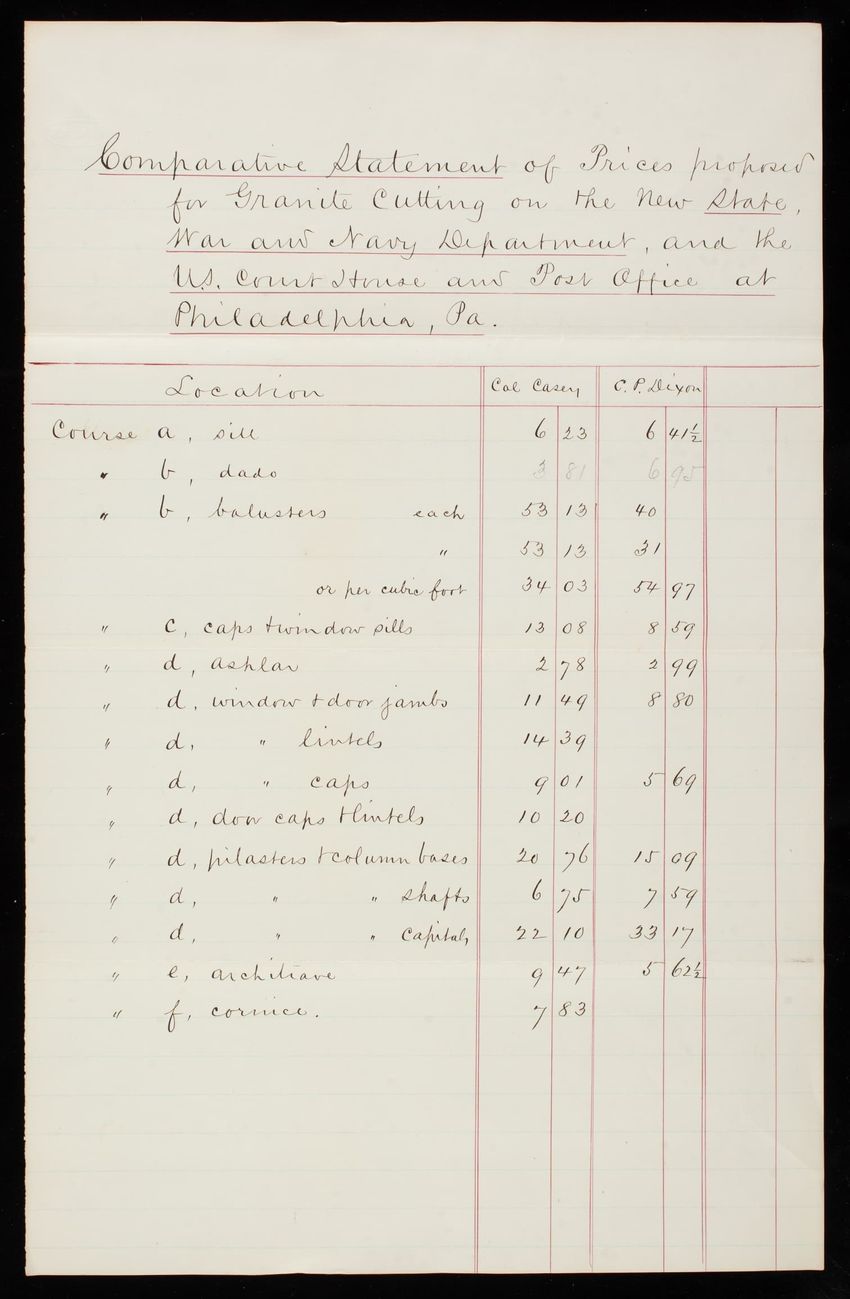 Comparative Statement of Prices proposed
for Granite Cutting on the New State,
War and Navy Department, and the
U.S. Court House and Post Office at
Philadelphia, Pa.
Location Col Casey C. P. Dixon
Course a, sill 6 23 6 41½
" b, dado 3 81 6 95
" b, balusters each 53 13 40
" 53 13 31
or per cubic foot 34 03 54 97
" c, caps + window sills 13 08 8 59
" d, ashlar 2 78 2 99
" d, window + door jambs 11 49 8 80
" d, " lintels 14 39
" d, " caps 9 01 5 69
" d, door caps + lintels 10 20
" d, pilasters + column bases 20 76 15 09
" d, " " shafts 6 75 7 59
" d, " " Capitals 22 10 33 17
" e, architrave 9 47 5 62½
" f, cornice. 7 83